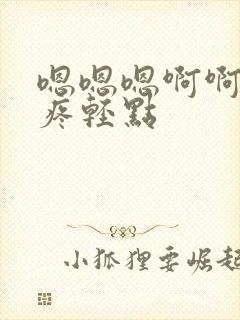 嗯嗯嗯啊啊
疼輕點
小狐狸要崛起